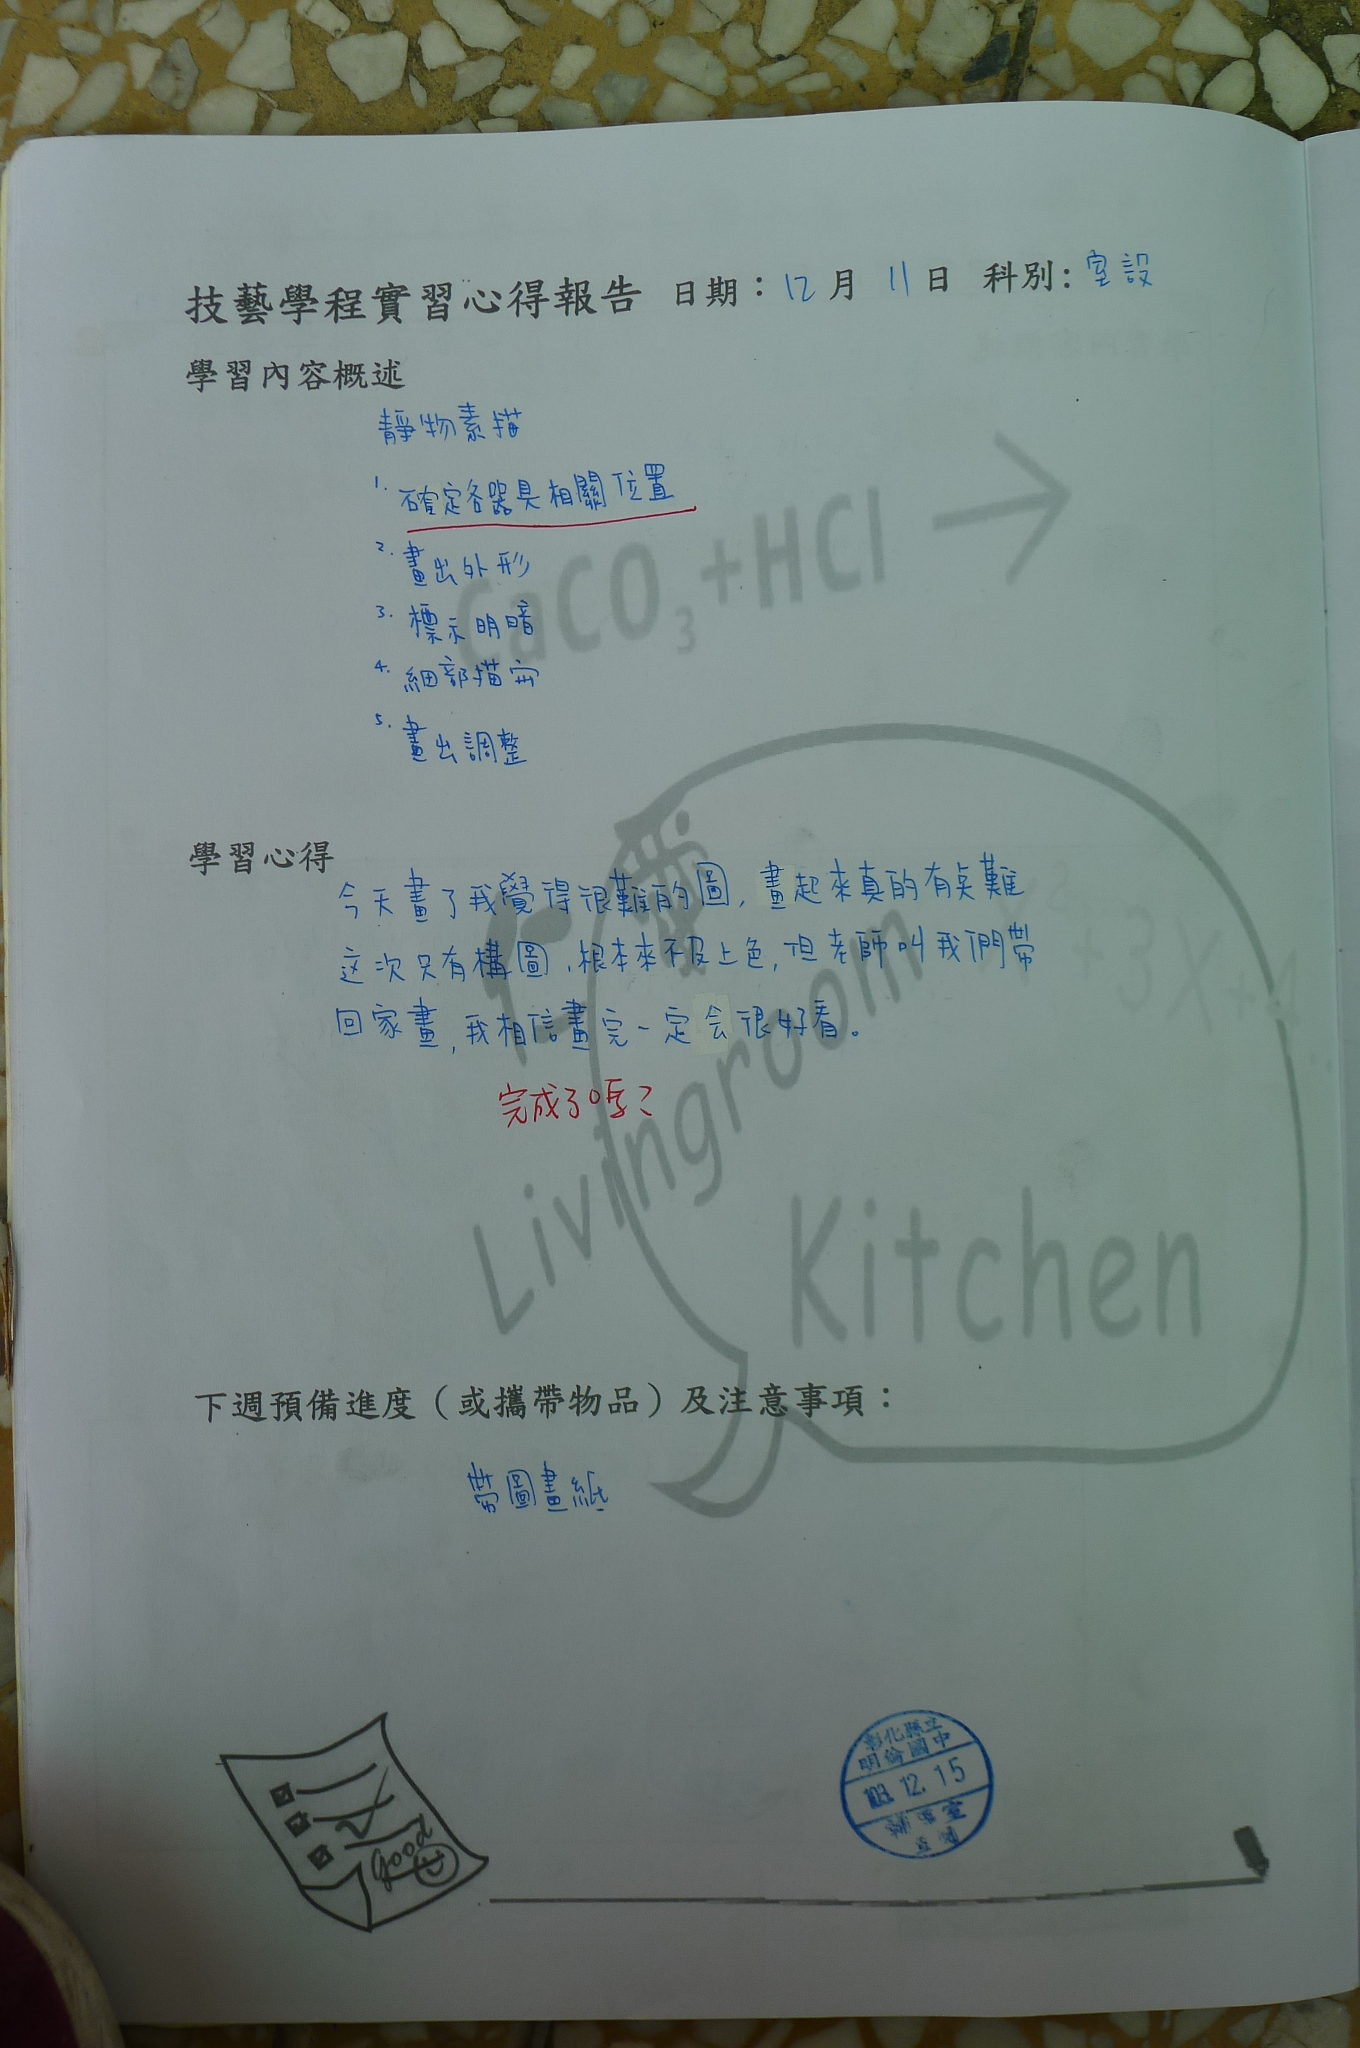 技藝學程實習心得報告 日期：12月 11日 科別: 室設
學習內容概述
靜物素描
1. 確定各器具相關位置
2. 畫出外形
3. 標示明暗
4. 細部描
5. 畫出調整
CaCO3+HCl →
學習心得
今天畫了我覺得很難的圖，畫起來真的有点難
这次只有構圖，根本來不及上色，但老師叫我們帶
回家畫，我相信畫完一定会很好看。
完成了嗎？
Livingroom
Kitchen
下週預備進度（或攜帶物品）及注意事項：
帶圖畫紙
彰化縣立
明倫國中
103. 12. 15
輔導室
Good